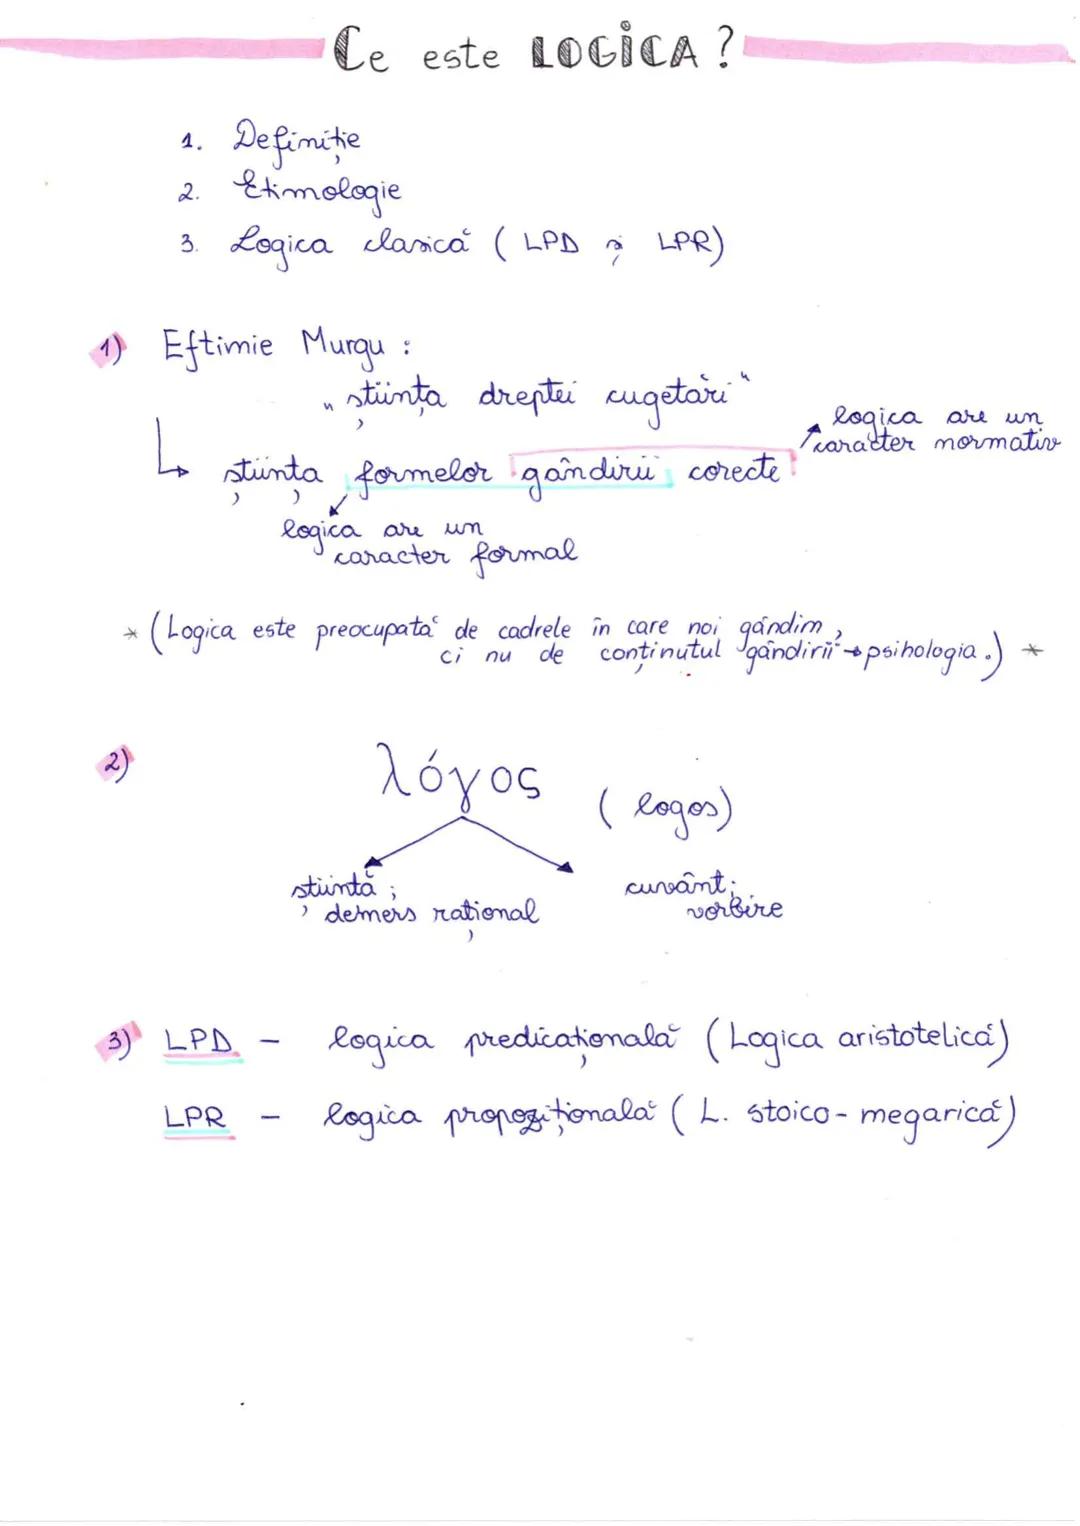 Ce este LOGICA?
1. Definiție
2. Etimologie
3. Logica clasică (LPD și LPR)
1) Eftimie Murgu:
„știința dreptei cugetări"
logica are un
caracter normativ
știința formelor gândirii corecte
logica are un
caracter formal
* (Logica este preocupată de cadrele în care noi gândim,
ci nu de conținutul gândirii → psihologia.) *
2)
λόγος (logos)
știință;
demers rațional
cuvânt;
vorbire
3) LPD - logica predicațională (Logica aristotelică)
LPR - logica propozițională (L. stoico-megarică)